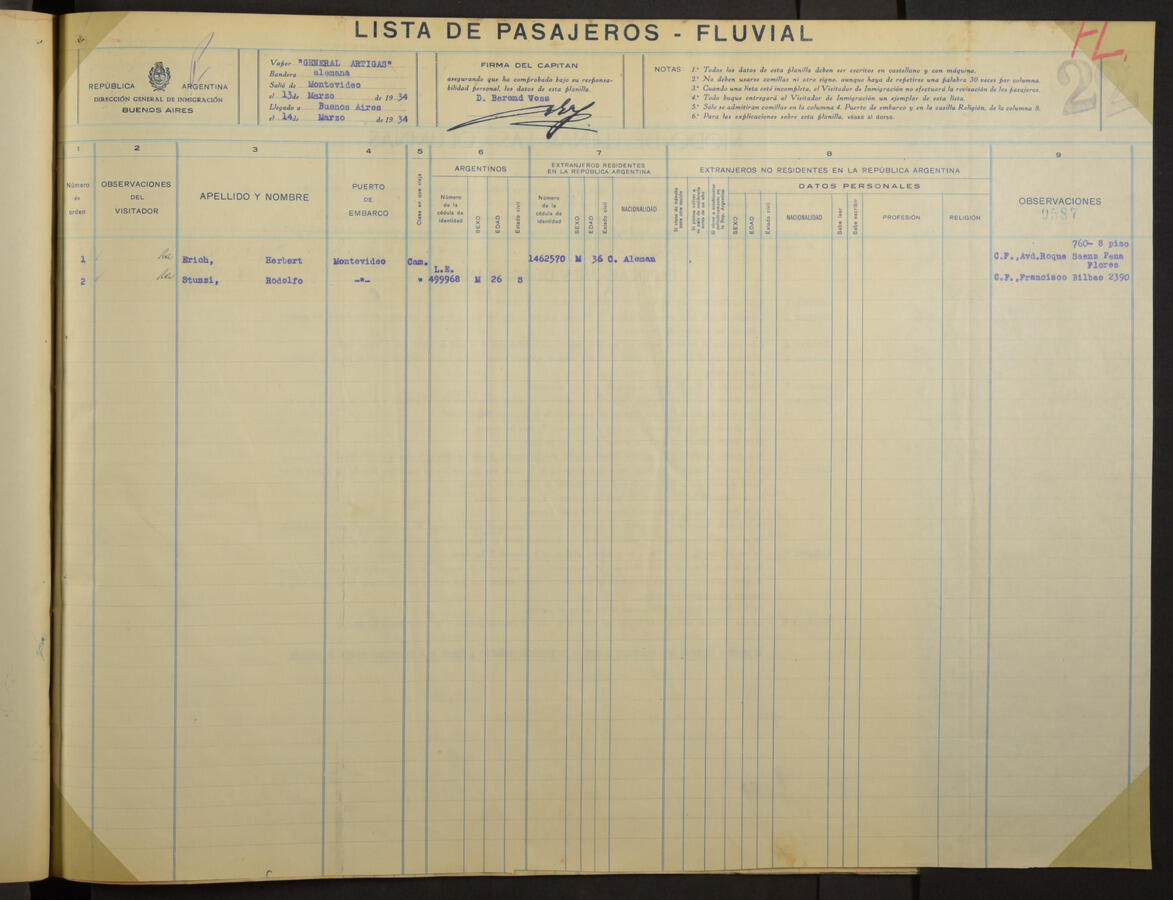 LISTA DE PASAJEROS - FLUVIAL
FL.
REPÚBLICA ARGENTINA
DIRECCIÓN GENERAL DE INMIGRACIÓN
BUENOS AIRES
Vapor "GENERAL ARTIGAS"
Bandera alemana
Salió de Montevideo
el 13 de Marzo de 1934
Llegado a Buenos Aires
el 14 de Marzo de 1934
FIRMA DEL CAPITAN
asegurando que ha comprobado bajo su responsa-
bilidad personal, los datos de esta planilla.
D. Berend Voss
NOTAS 1.ª Todos los datos de esta planilla deben ser escritos en castellano y con máquina.
2.ª No deben usarse comillas ni otro signo, aunque haya de repetirse una palabra 30 veces por columna.
3.ª Cuando una lista esté incompleta, el Visitador de Inmigración no efectuará la revisación de los pasajeros.
4.ª Todo buque entregará al Visitador de Inmigración un ejemplar de esta lista.
5.ª Sólo se admitirán comillas en la columna 4, Puerto de embarco y en la casilla Religión, de la columna 8.
6.ª Para las explicaciones sobre esta planilla, véase al dorso.
1 2 3 4 5 6 7 8 9
Número de orden
OBSERVACIONES DEL VISITADOR
APELLIDO Y NOMBRE
PUERTO DE EMBARCO
Clase en que viaja
ARGENTINOS
Número de la cédula de identidad
SEXO
EDAD
Estado civil
EXTRANJEROS RESIDENTES EN LA REPÚBLICA ARGENTINA
Número de la cédula de identidad
SEXO
EDAD
Estado civil
NACIONALIDAD
EXTRANJEROS NO RESIDENTES EN LA REPÚBLICA ARGENTINA
DATOS PERSONALES
SEXO
EDAD
Estado civil
NACIONALIDAD
Sabe leer
Sabe escribir
PROFESIÓN
RELIGIÓN
OBSERVACIONES
9587
760- 8 piso
1 Erich, Herbert Montevideo Cam. 1462570 M 36 C. Aleman C.F.,Avd.Roque Saenz Pena
L.E. Flores
2 Stunzi, Rodolfo -"- " 499968 M 26 S C.F.,Francisco Bilbao 2390